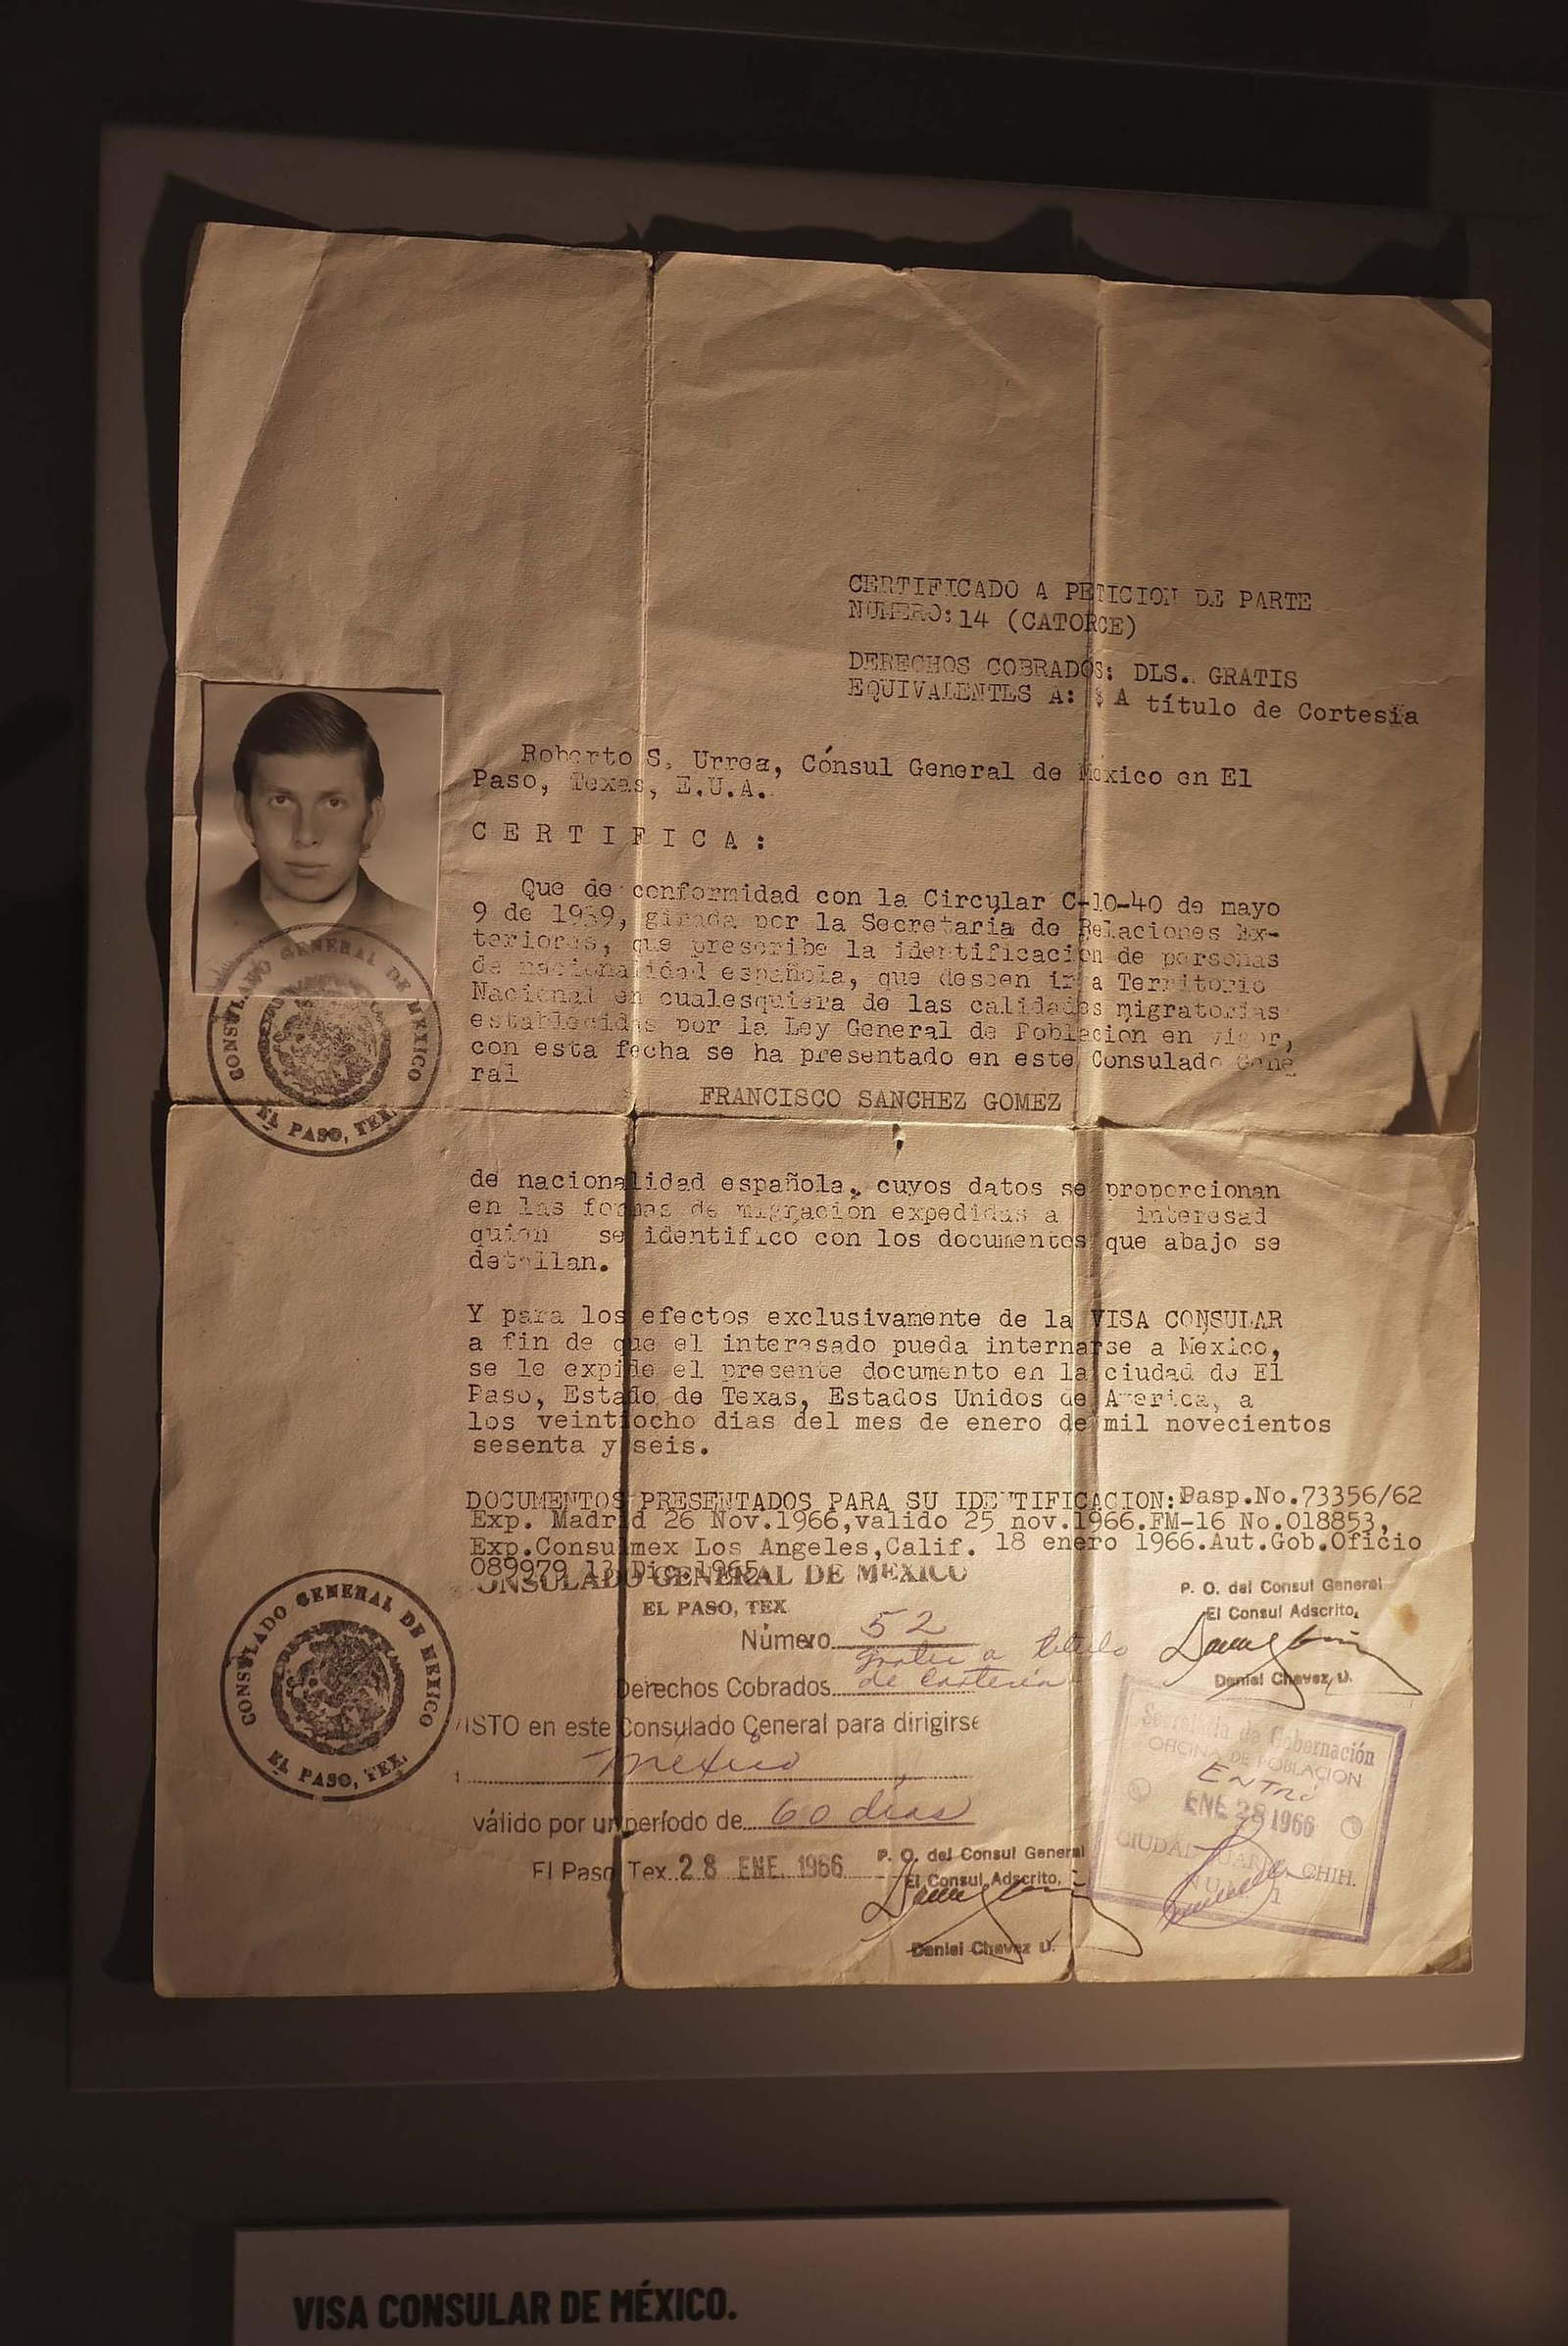 CERTIFICADO A PETICION DE PARTE
NUMERO: 14 (CATORCE)
DERECHOS COBRADOS: DLS. GRATIS
EQUIVALENTES A: $ A título de Cortesía
Roberto S. Urrea, Cónsul General de México en El
Paso, Texas, E.U.A.
C E R T I F I C A :
Que de conformidad con la Circular C-10-40 de mayo
9 de 1939, girada por la Secretaría de Relaciones Ex-
teriores, que prescribe la identificación de personas
de nacionalidad española, que deseen ir a Territorio
Nacional en cualesquiera de las calidades migratorias
establecidas por la Ley General de Poblacion en vigor,
con esta fecha se ha presentado en este Consulado Gene
ral
FRANCISCO SANCHEZ GOMEZ
CONSULADO GENERAL DE MEXICO
EL PASO, TEX.
de nacionalidad española, cuyos datos se proporcionan
en las formas de migración expedidas a interesad
quien se identifico con los documentos que abajo se
detallan.
Y para los efectos exclusivamente de la VISA CONSULAR
a fin de que el interesado pueda internarse a México,
se le expide el presente documento en la ciudad de El
Paso, Estado de Texas, Estados Unidos de America, a
los veintiocho dias del mes de enero de mil novecientos
sesenta y seis.
DOCUMENTOS PRESENTADOS PARA SU IDENTIFICACION: Pasp.No.73356/62
Exp. Madrid 26 Nov.1966,valido 25 nov.1966.FM-16 No.018853,
Exp.Consulmex Los Angeles,Calif. 18 enero 1966.Aut.Gob.Oficio
089979 13 Dic.1965
ONSULADO GENERAL DE MEXICO
EL PASO, TEX
Número 52
gratis a título
Derechos Cobrados de cortesía
VISTO en este Consulado General para dirigirse
México
válido por un período de 60 días
El Paso Tex. 28 ENE. 1966
P. O. del Consul General
El Consul Adscrito,
Daniel Chavez U.
CONSULADO GENERAL DE MEXICO
EL PASO, TEX.
P. O. del Consul General
El Consul Adscrito,
Daniel Chavez U.
Secretaría de Gobernación
OFICINA DE POBLACION
ENTRÓ
ENE 28 1966
CIUDAD JUAREZ, CHIH.
NUM. 1
VISA CONSULAR DE MÉXICO.